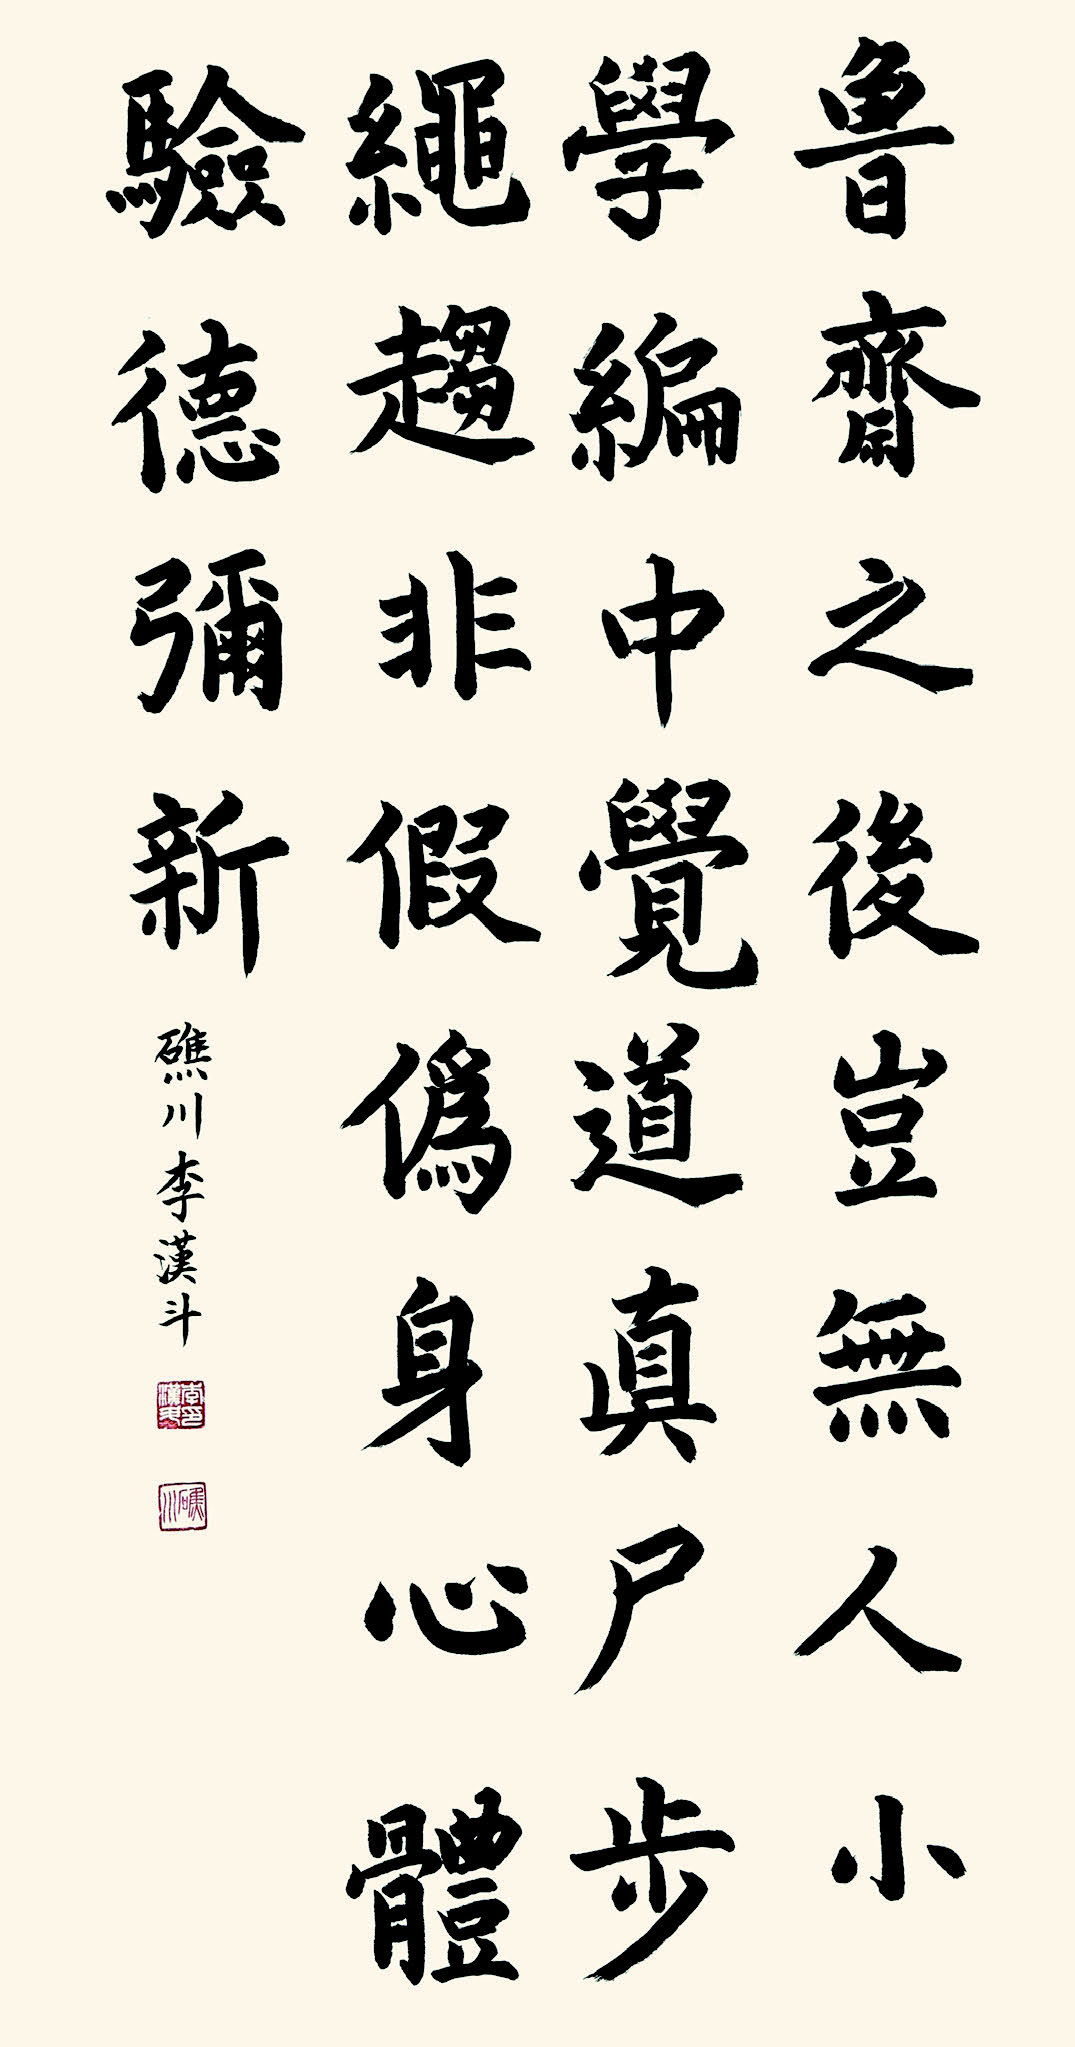 魯齋之後豈無人小
學編中覺道眞尸步
繩趨非假僞身心體
驗德彌新
礁川李漢斗
礁川